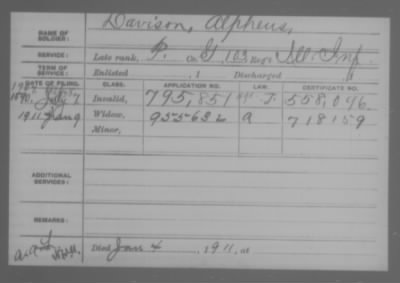 NAME OF SOLDIER: Davison, Alpheus,
SERVICE: Late rank, P. Co. G, 103 Reg't Ill. Inf.
TERM OF SERVICE: Enlisted , 1 Discharged , 1
DATE OF FILING. CLASS. APPLICATION NO. LAW. CERTIFICATE NO.
July 7 Invalid, 795,851 558,096
1911 Jan 9 Widow, 955632 a 718159
Minor,
ADDITIONAL SERVICES:
REMARKS:
Died Jan 4 , 1911, at